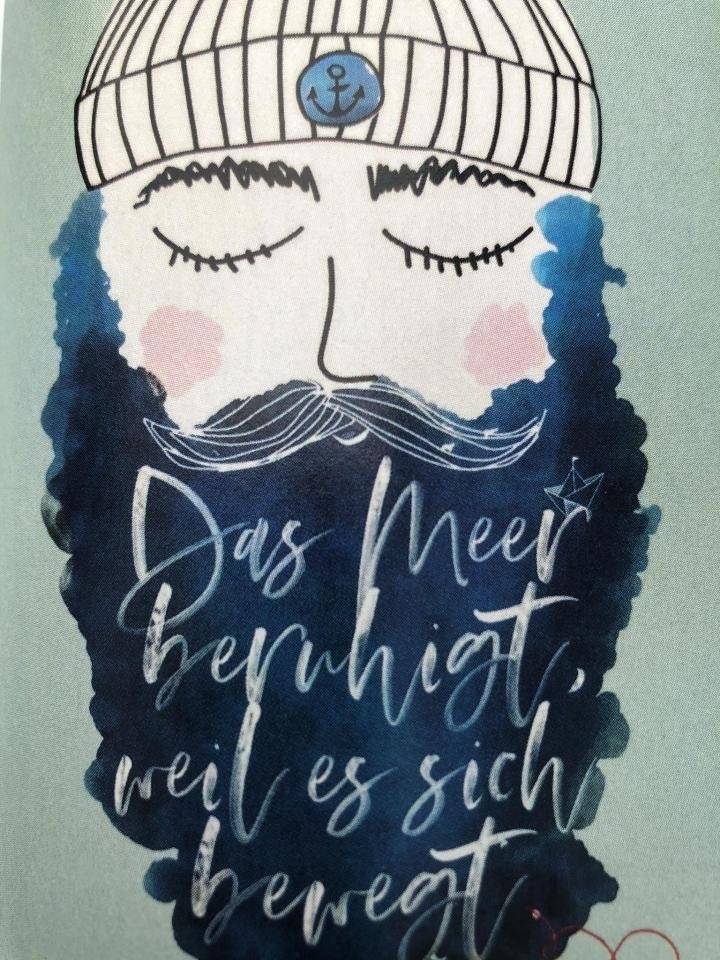 Das Meer
beruhigt,
weil es sich
bewegt